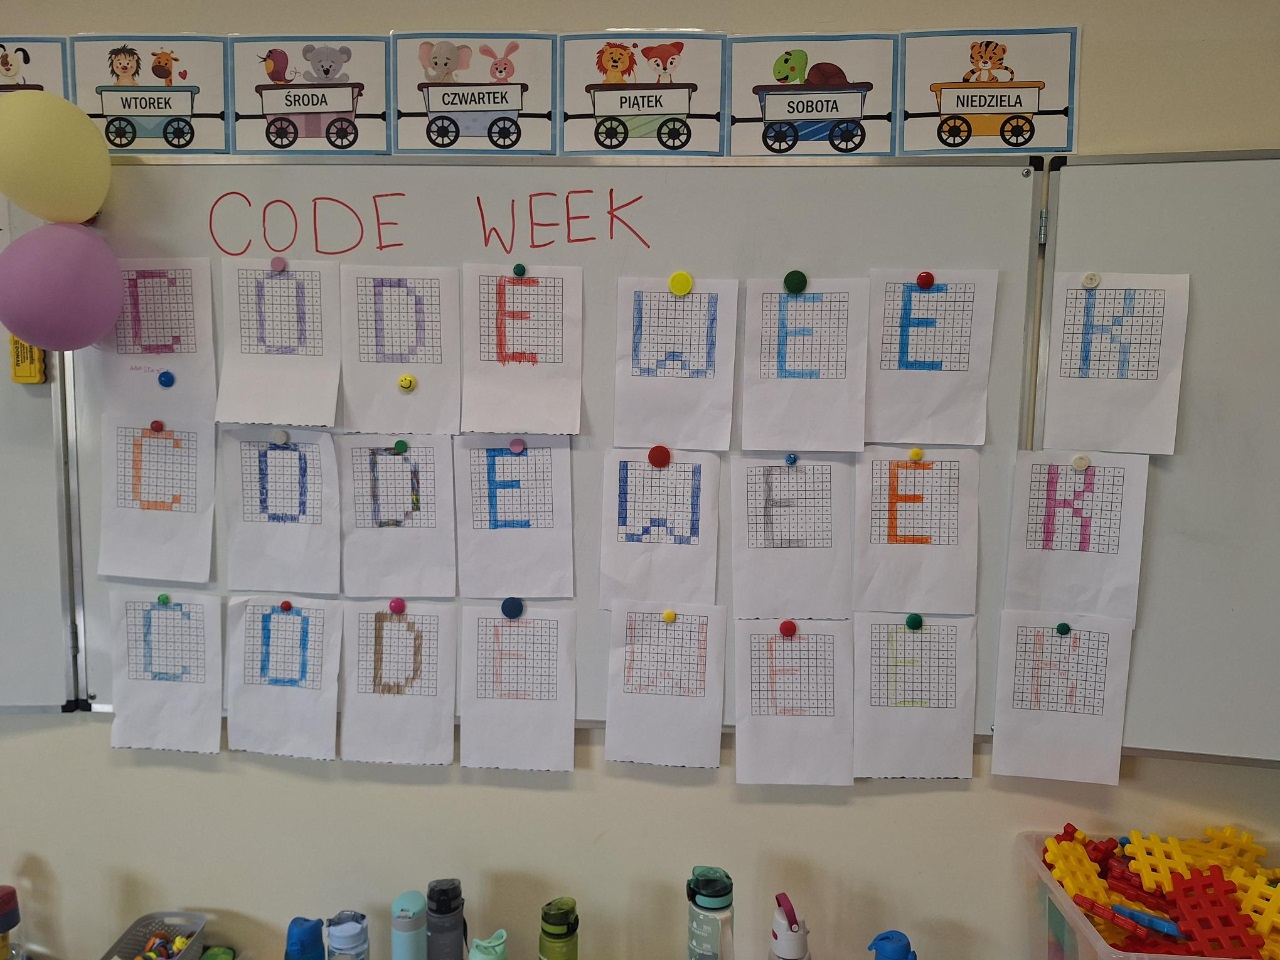 WTOREK
ŚRODA
CZWARTEK
PIĄTEK
SOBOTA
NIEDZIELA
CODE WEEK
C O D E W E E K
C O D E W E E K
C O D E W E E K